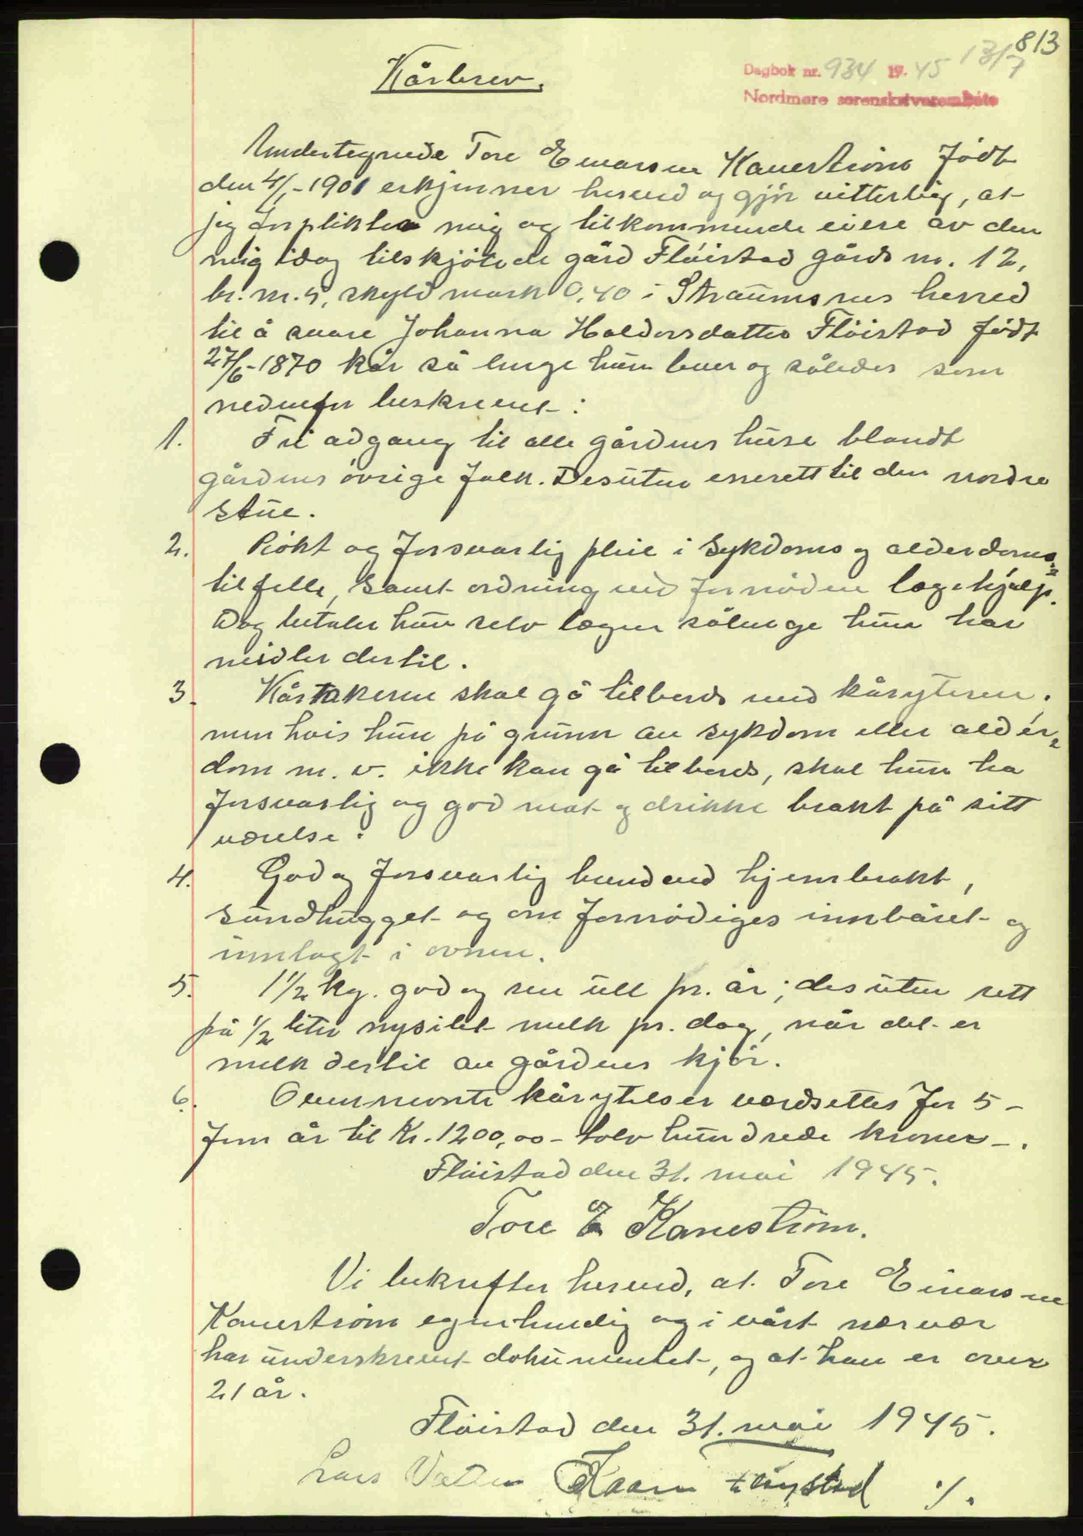 813
131/7
Dagbok nr. 934 19.45
Nordmøre sorenskriverembete
Kårbrev.
Undertegnede Tore Einarsen Kanestrøm født
den 4/1-1901 erkjenner herved og gjør vitterlig, at
jeg forplikter mig og tilkommende eiere av den
mig idag tilskjøtede gård Fløistad gårds nr. 12,
br. nr. 5, skyld mark 0,40 i Straumsnes herred
til å svare Johanna Haldorsdatter Fløistad født
27/6-1870 kår så lenge hun lever og således som
nedenfor beskrevet:
1. Fri adgang til alle gårdens huse blandt
gårdens øvrige folk. Desuten enerett til den nordre
stue.
2. Røkt og forsvarlig pleie i sykdoms og alderdoms-
tilfelle, samt ordning ved fornøden lægehjælp.
Dog betaler hun selv lægen sålenge hun har
midler dertil.
3. Kårtakeren skal gå tilbords med kåryteren,
men hvis hun på grunn av sykdom eller alder-
dom m. v. ikke kan gå tilbords, skal hun ha
forsvarlig og god mat og drikke brakt på sitt
værelse.
4. God og forsvarlig brendved hjembrakt,
sundhugget og om fornødiges innbåret og
innlagt i ovnen.
5. 1 1/2 kg. god og ren ull pr. år; desuten rett
på 1/2 liter nysilet melk pr. dag, når det er
melk dertil av gårdens kjør.
6. Ovennevnte kårytelser verdsettes for 5-
fem år til kr. 1200,00- tolv hundrede kroner-.
Fløistad den 31. mai 1945.
Tore E Kanestrøm.
Vi bekrefter herved, at Tore Einarsen
Kanestrøm egenhendig og i vårt nærvær
har underskrevet dokumentet, og at han er over
21 år.
Fløistad den 31. mai 1945.
Lars Kaare Fløystad ./.